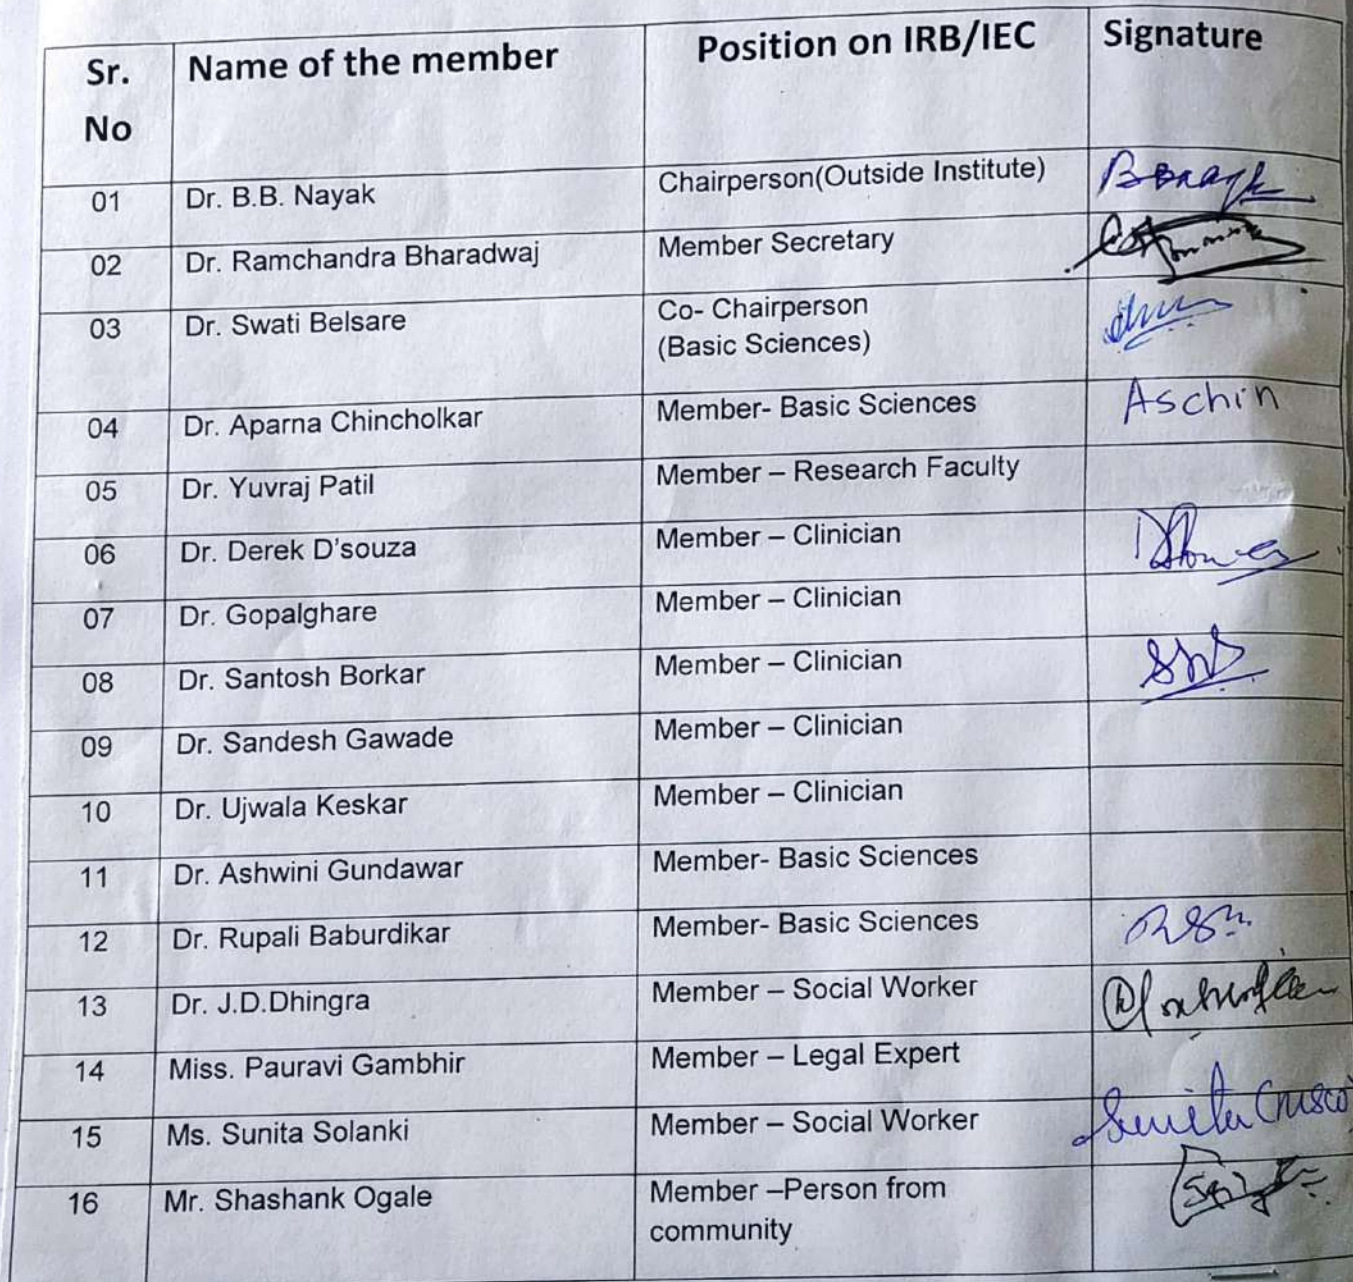 Sr. No Name of the member Position on IRB/IEC Signature
01 Dr. B.B. Nayak Chairperson(Outside Institute)
02 Dr. Ramchandra Bharadwaj Member Secretary
03 Dr. Swati Belsare Co- Chairperson
(Basic Sciences)
04 Dr. Aparna Chincholkar Member- Basic Sciences Aschin
05 Dr. Yuvraj Patil Member – Research Faculty
06 Dr. Derek D'souza Member – Clinician
07 Dr. Gopalghare Member – Clinician
08 Dr. Santosh Borkar Member – Clinician
09 Dr. Sandesh Gawade Member – Clinician
10 Dr. Ujwala Keskar Member – Clinician
11 Dr. Ashwini Gundawar Member- Basic Sciences
12 Dr. Rupali Baburdikar Member- Basic Sciences
13 Dr. J.D.Dhingra Member – Social Worker
14 Miss. Pauravi Gambhir Member – Legal Expert
15 Ms. Sunita Solanki Member – Social Worker
16 Mr. Shashank Ogale Member –Person from
community